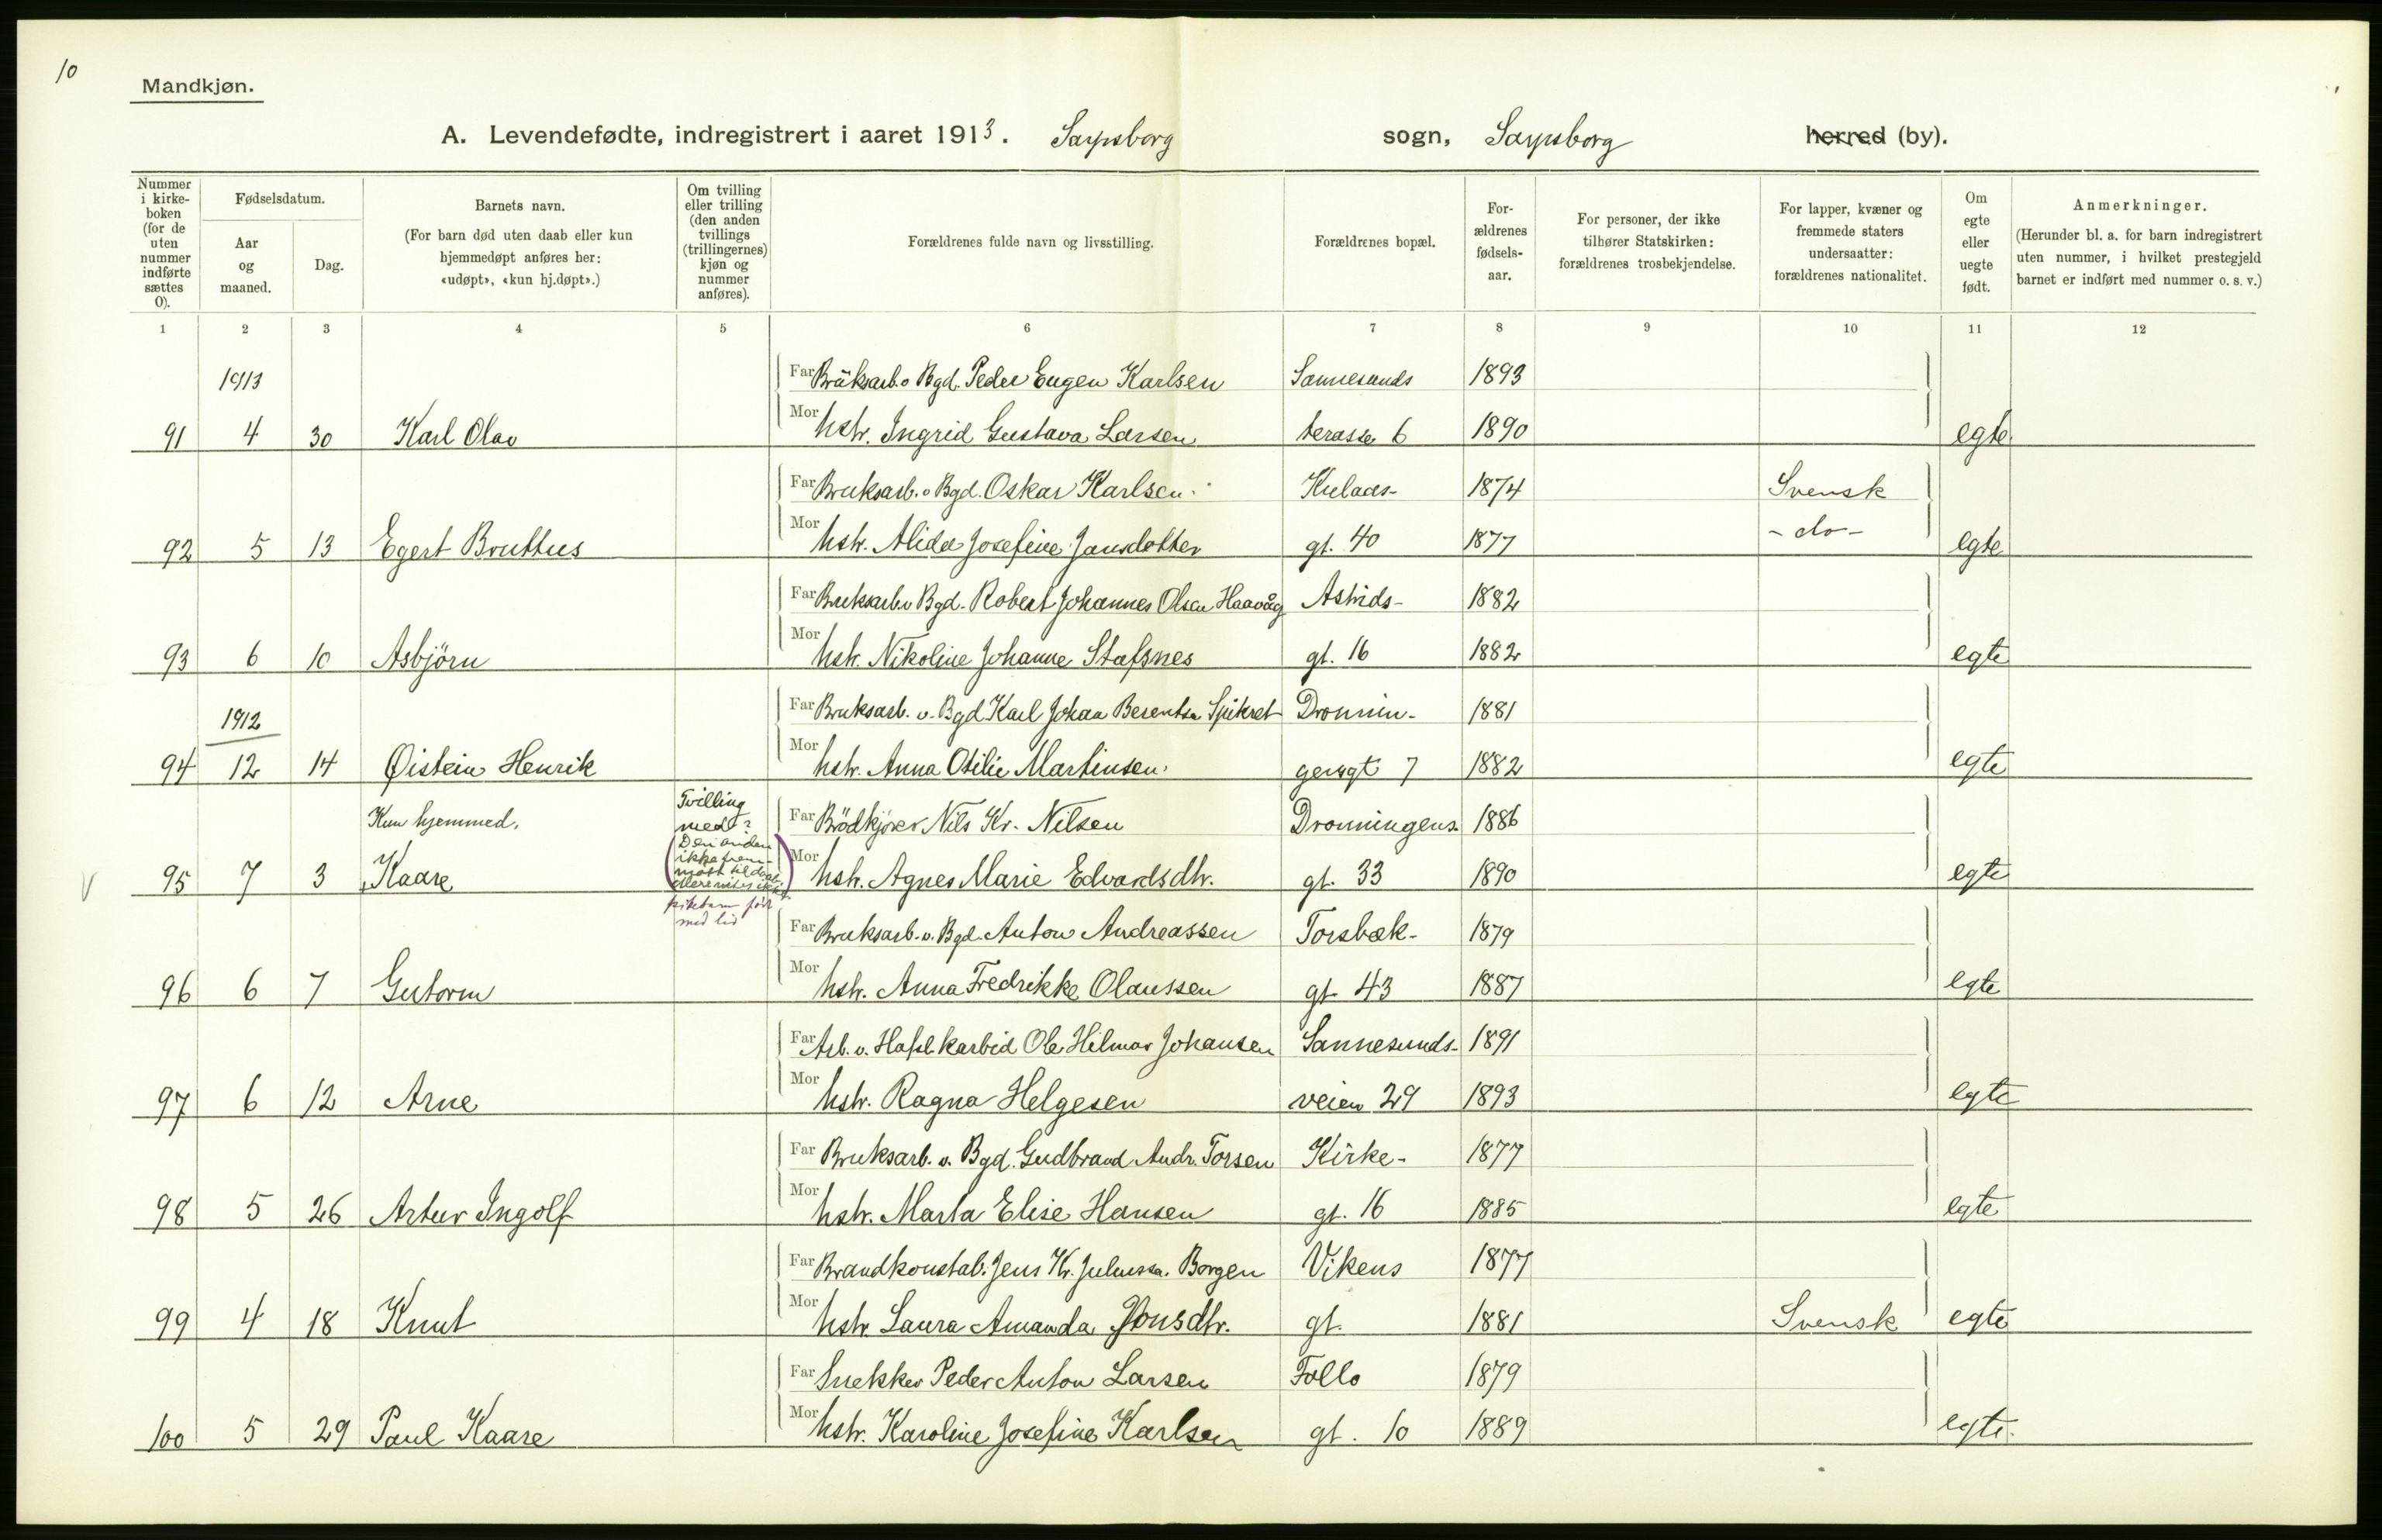 10
Mandkjøn.
A. Levendefødte, indregistrert i aaret 1913. Sarpsborg sogn, Sarpsborg herred (by).
Nummer i kirkeboken (for de uten nummer indførte sættes 0).
Fødselsdatum.
Aar og maaned.
Dag.
Barnets navn.
(For barn død uten daab eller kun hjemmedøpt anføres her: «udøpt», «kun hj.døpt».)
Om tvilling eller trilling (den anden tvillings (trillingernes) kjøn og nummer anføres).
Forældrenes fulde navn og livsstilling.
Forældrenes bopæl.
For-ældrenes fødsels-aar.
For personer, der ikke tilhører Statskirken: forældrenes trosbekjendelse.
For lapper, kvæner og fremmede staters undersaatter: forældrenes nationalitet.
Om egte eller uegte født.
Anmerkninger.
(Herunder bl. a. for barn indregistrert uten nummer, i hvilket prestegjeld barnet er indført med nummer o. s. v.)
1 2 3 4 5 6 7 8 9 10 11 12
1913 Far Bruksarb. v Bgd. Peder Eugen Karlsen Sannesunds 1893
91 4 30 Karl Olav Mor hstr. Ingrid Gustava Larsen terasse 6 1890 egte
Far Bruksarb. v Bgd. Oskar Karlsen Kulaas- 1874 Svensk
92 5 13 Egert Bruttus Mor hstr. Alida Josefine Jansdotter gt. 40 1877 - do - egte
Far Bruksarb. v Bgd. Robert Johannes Olsen Haavåg Astrids- 1882
93 6 10 Asbjörn Mor hstr. Nikoline Johanne Stafsnes gt. 16 1882 egte
1912 Far Bruksarb. v. Bgd Karl Johan Berentsen Spikret Dronnin- 1881
94 12 14 Øistein Henrik Mor hstr. Anna Otilie Martinsen gensgt 7 1882 egte
Kun hjemmed. Tvilling med? Far Brödkjører Nils Kr. Nilsen Dronningens 1886
95 7 3 Kaare (Den anden ikke frem- Mor hstr. Agnes Marie Edvardsdtr. gt. 33 1890 egte
pikebarn født
med liv
Far Bruksarb. v. Bgd. Anton Andreassen Torsbæk- 1879
96 6 7 Gutorm Mor hstr. Anna Fredrikke Olaussen gt 43 1887 egte
Far Arb. v. Hafsl. karbid Ole Hilmar Johansen Sannesunds- 1891
97 6 12 Arne Mor hstr. Ragna Helgesen veien 29 1893 egte
Far Bruksarb. v. Bgd. Gudbrand Andr. Torsen Kirke- 1877
98 5 26 Artur Ingolf Mor hstr. Marta Elise Hansen gt. 16 1885 egte
Far Brandkonstab. Jens Kr. Juliussen Borgen Vikens 1877
99 4 18 Knut Mor hstr. Laura Amanda Jonsdtr. gt. 1881 Svensk egte
Far Snekker Peder Anton Larsen Follo 1879
100 5 29 Paul Kaare Mor hstr. Karoline Josefine Karlsen gt. 10 1889 egte.